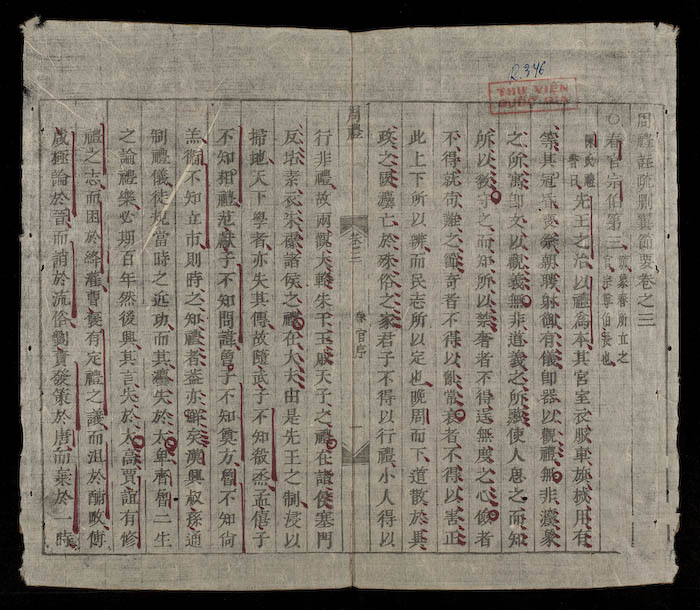 R.346
THƯ VIỆN
QUỐC GIA
周禮註疏刪翼節要卷之三
○春官宗伯第三
官宗尊伯長也
陳氏禮書曰
先王之治以禮為本其宮室衣服車旗械用有
等其冠昏喪祭朝聘射御有儀即器以觀禮無非法象
之所寓即文以觀義無非道義之所藏使人思之而知
所以教守之而知所以禁奢者不得逞無度之心儉者
不得就苟難之節奇者不得以亂常衺者不得以害正
此上下所以辨而民志所以定也晚周而下道散於異
政之國法亡於殊俗之家君子不得以行禮小人得以
周禮
卷之三
春官序
一
行非禮故兩觀大輅朱干玉戚天子之禮在諸侯塞門
反坫素衣朱襮諸侯之禮在大夫由是先王之制浸以
掃地天下學者亦失其傳故隨武子不知殽烝孟僖子
不知相禮范獻子不知問諱曾子不知奠方曾不知尚
羔衛不知立市則時之知禮者蓋亦鮮矣漢興叔孫通
制禮儀徒規當時之近功而其法失於太卑齊魯二生
之論禮樂必期百年然後興其言失於太高賈誼有修
禮之志而困於絳灌曹褒有定禮之議而沮於酺敏傅
咸極論於晉而誚於流俗劉蕡發策於唐而棄於一時